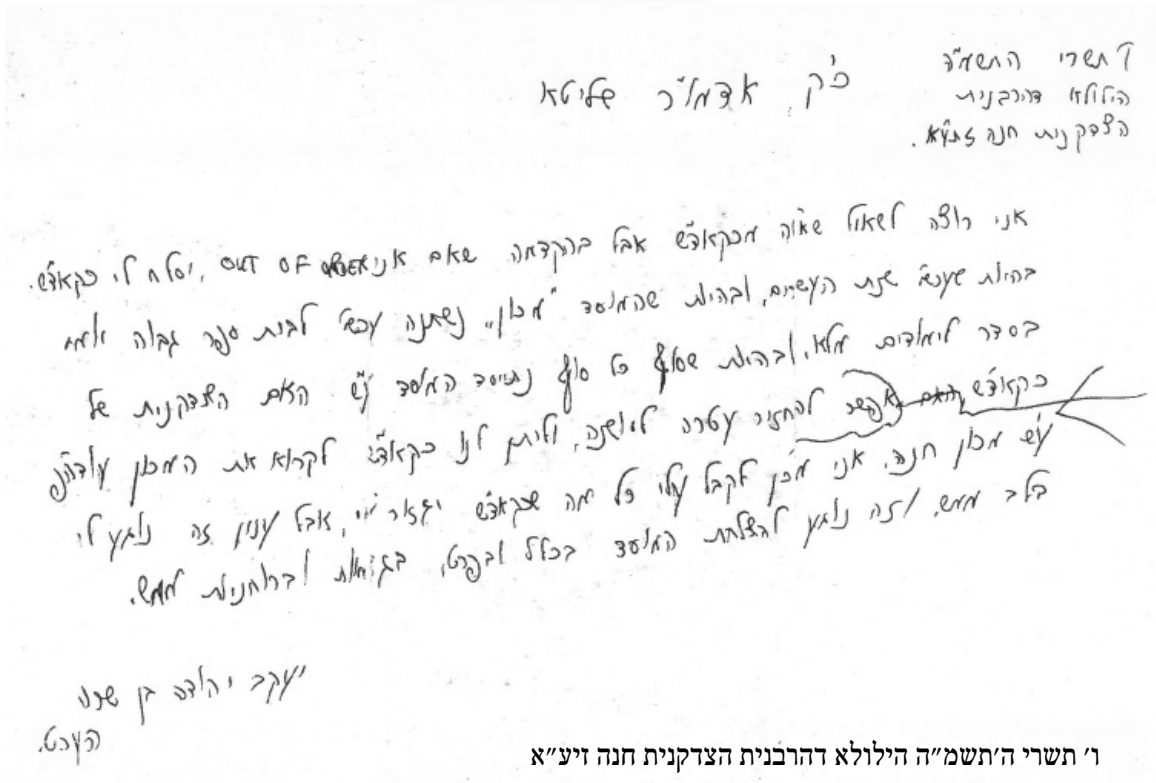 ו' תשרי התשמ"ה
הילולא דהרבנית
הצדקנית חנה זיע"א.
כ"ק אדמו"ר שליטא
אני רוצה לשאול מכקאד"ש אבל בהקדמה שאם אני OUT OF ORDER, יסלח לי כקאד"ש.
בהיות שעכשיו שנת העשרים, ובהיות שהמוסד "מכון" נשתנה עכשיו לבית ספר גבוה
בסדר לימודים מלא, ובהיות שסוף כל סוף נתייסד המוסד ע"ש האם הצדקנית של
כקאד"ש, האם אפשר להחזיר עטרה ליושנה, וליתן לנו כקאד"ש לקרוא את המכון
ע"ש מכון חנה. אני מוכן לקבל עלי כל מה שכקאד"ש יגזור עלי, אבל ענין זה נוגע לי
בלב ממש, וזה נוגע להצלחת המוסד בכלל ובפרט, בגשמיות וברוחניות ממש.
יעקב יהודה בן שרה
העכט.
ו׳ תשרי ה׳תשמ״ה הילולא דהרבנית הצדקנית חנה זיע״א